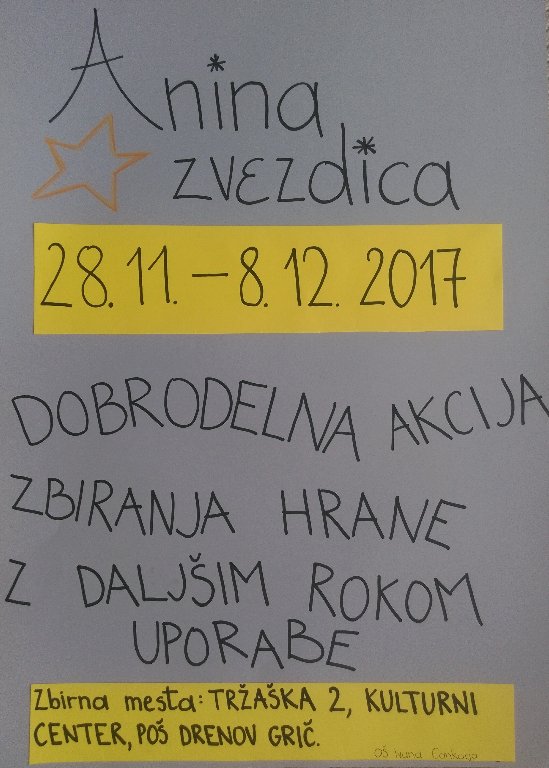 Anina
zvezdica
28. 11. – 8. 12. 2017
DOBRODELNA AKCIJA
ZBIRANJA HRANE
Z DALJŠIM ROKOM
UPORABE
Zbirna mesta: TRŽAŠKA 2, KULTURNI
CENTER, POŠ DRENOV GRIČ.
OŠ Ivana Cankarja